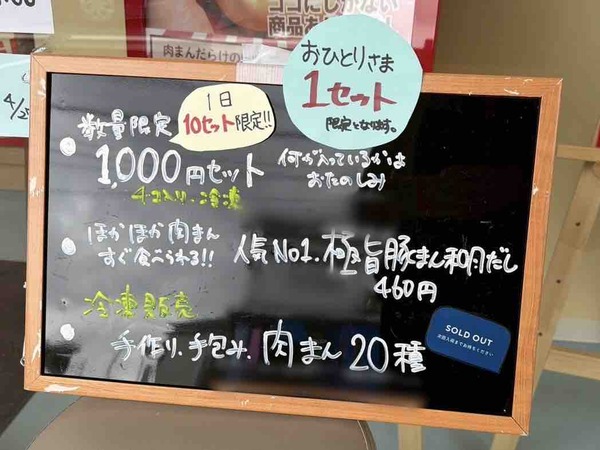 ココにしかない
肉まんだらけの
おひとりさま
1セット
限定となります。
1日
10セット限定!!
数量限定
1,000円セット
4コ入り・冷凍
何が入っているかは
おたのしみ
ほかほか肉まん
すぐ食べられる!!
人気No1.極旨豚まん和風だし
460円
冷凍販売
手作り、手包み、肉まん20種
SOLD OUT
次回入荷までお待ちください